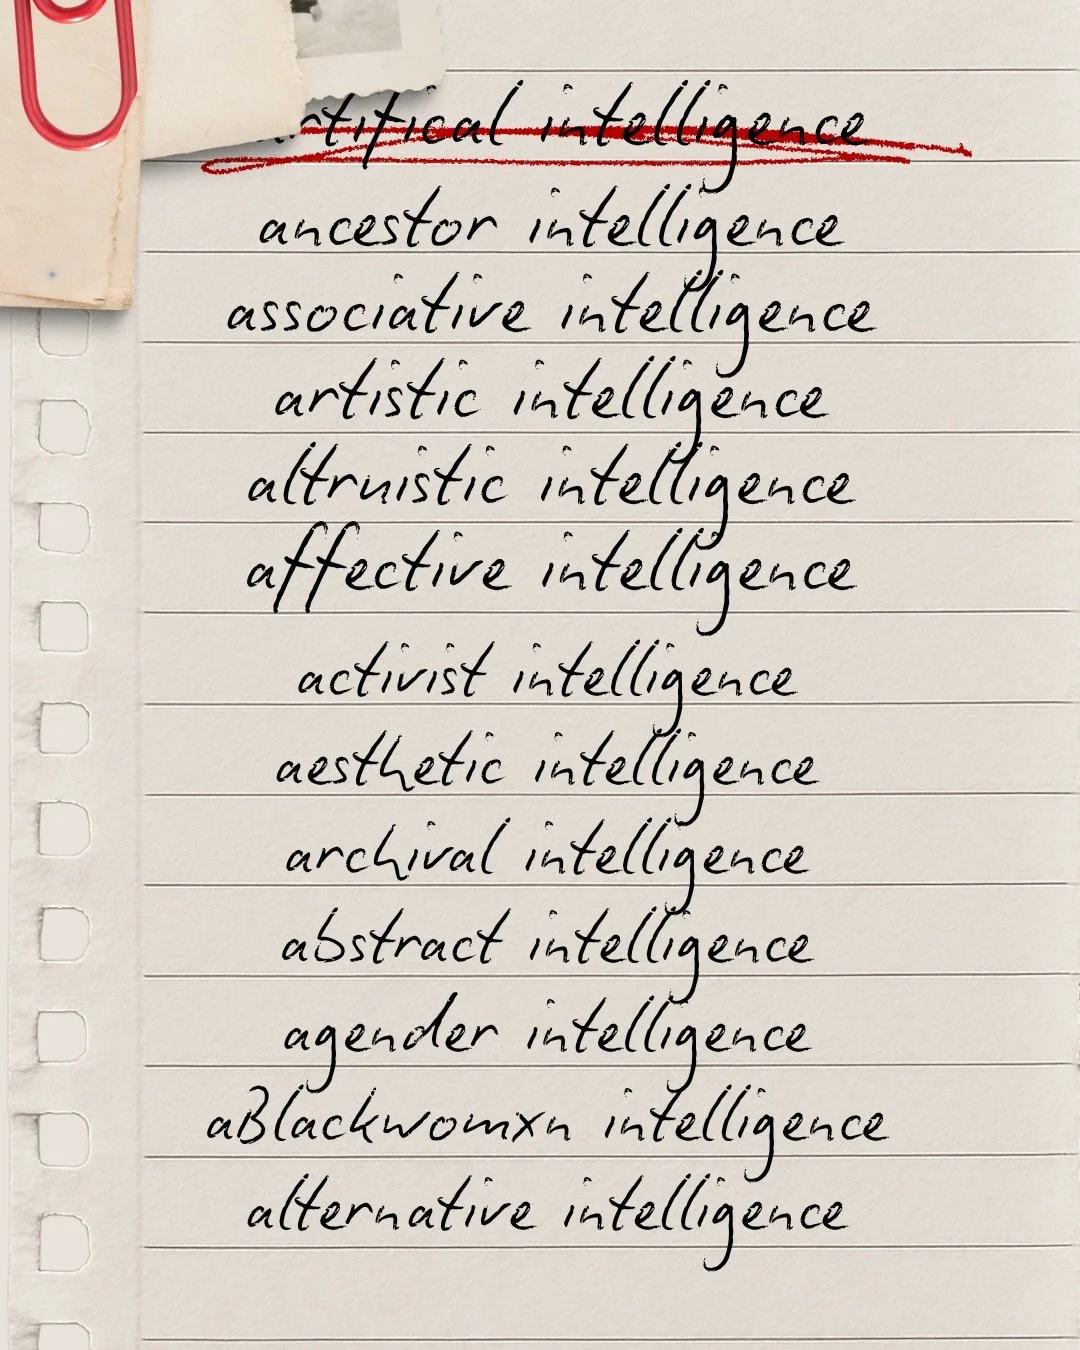 artifical intelligence
ancestor intelligence
associative intelligence
artistic intelligence
altruistic intelligence
affective intelligence
activist intelligence
aesthetic intelligence
archival intelligence
abstract intelligence
agender intelligence
aBlackwomxn intelligence
alternative intelligence